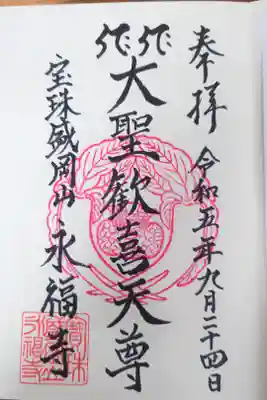 奉拝
令和五年九月二十四日
大聖歓喜天尊
宝珠盛岡山
永福寺